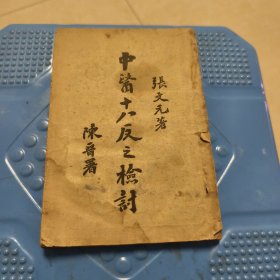 張文元著
中醫十八反之檢討
陳郁署